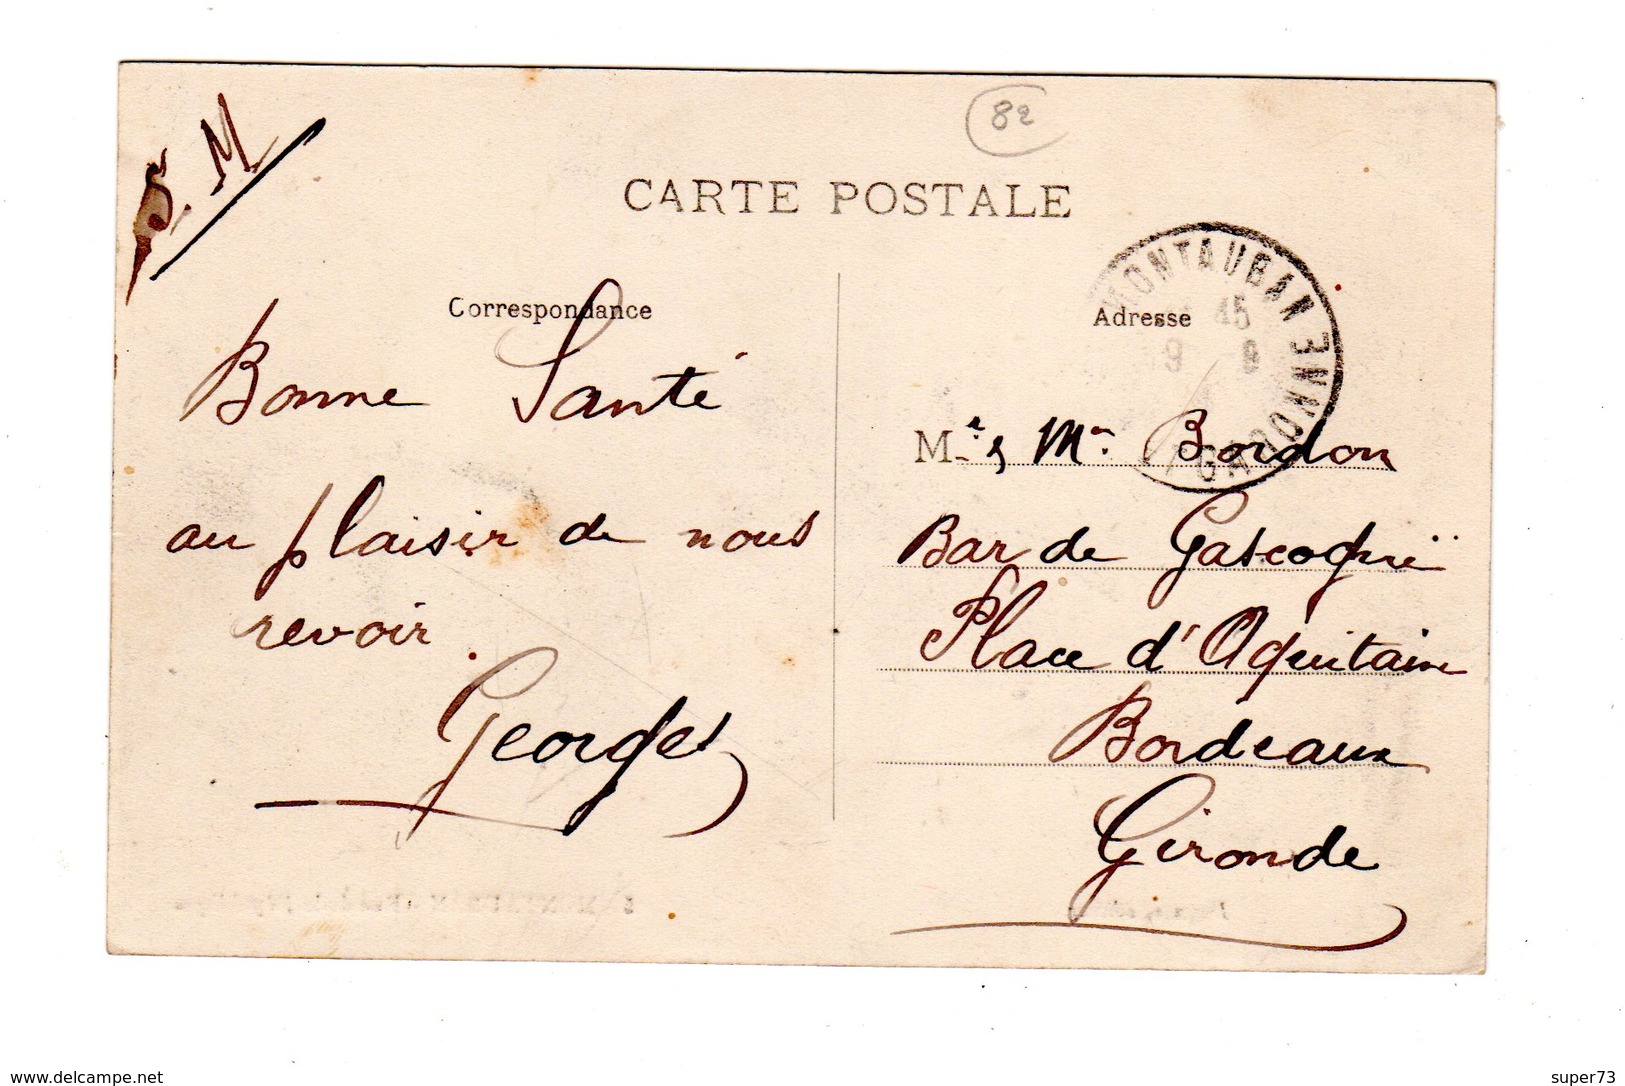 82
F. M
CARTE POSTALE
Correspondance
Bonne Santé
au plaisir de nous
revoir.
Georges
MONTAUBAN
45
9 9
GARONNE
Adresse
Mr & Me Bordon
Bar de Gascogne
Place d'Aquitaine
Bordeaux
Gironde
www.delcampe.net
super73